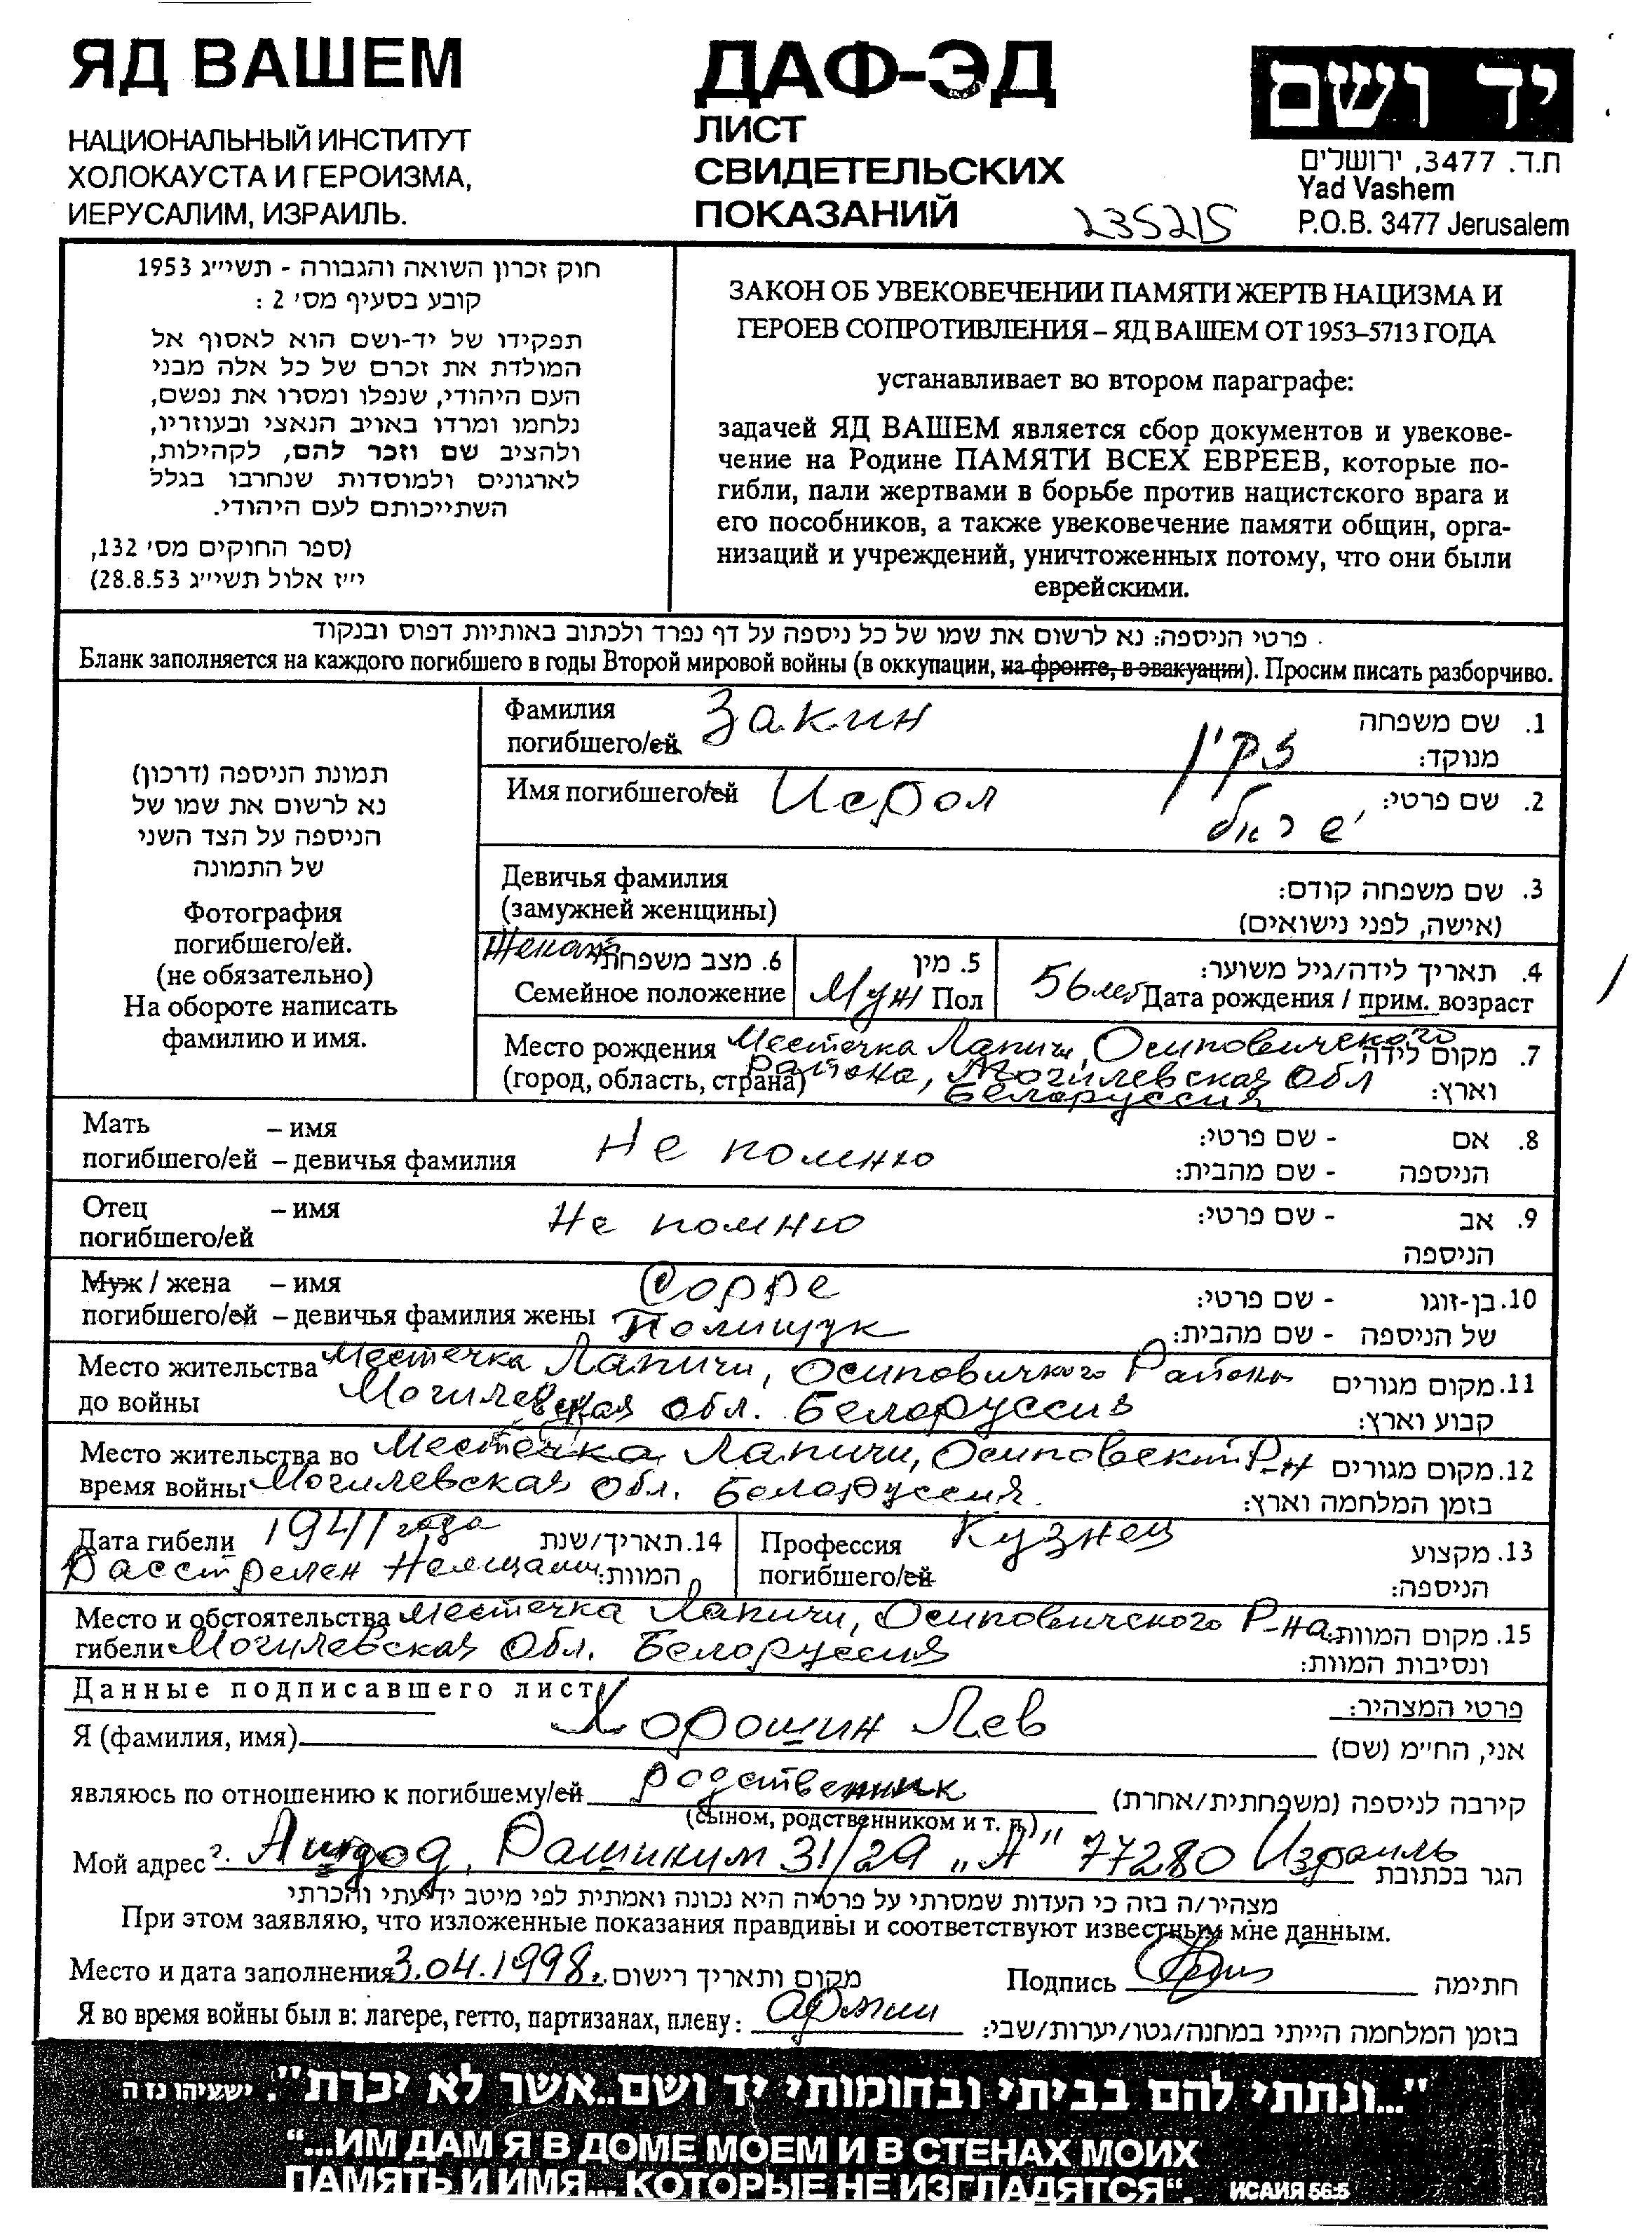 ЯД ВАШЕМ
НАЦИОНАЛЬНЫЙ ИНСТИТУТ
ХОЛОКАУСТА И ГЕРОИЗМА,
ИЕРУСАЛИМ, ИЗРАИЛЬ.
ДАФ-ЭД
ЛИСТ
СВИДЕТЕЛЬСКИХ
ПОКАЗАНИЙ
235215
יד ושם
ת.ד. 3477, ירושלים
Yad Vashem
P.O.B. 3477 Jerusalem
חוק זכרון השואה והגבורה - תשי״ג 1953
קובע בסעיף מס׳ 2 :
תפקידו של יד-ושם הוא לאסוף אל
המולדת את זכרם של כל אלה מבני
העם היהודי, שנפלו ומסרו את נפשם,
נלחמו ומרדו באויב הנאצי ובעוזריו,
ולהציב שם וזכר להם, לקהילות,
לארגונים ולמוסדות שנחרבו בגלל
השתייכותם לעם היהודי.
(ספר החוקים מס׳ 132,
י״ז אלול תשי״ג 28.8.53)
ЗАКОН ОБ УВЕКОВЕЧЕНИИ ПАМЯТИ ЖЕРТВ НАЦИЗМА И
ГЕРОЕВ СОПРОТИВЛЕНИЯ – ЯД ВАШЕМ ОТ 1953–5713 ГОДА
устанавливает во втором параграфе:
задачей ЯД ВАШЕМ является сбор документов и увекове-
чение на Родине ПАМЯТИ ВСЕХ ЕВРЕЕВ, которые по-
гибли, пали жертвами в борьбе против нацистского врага и
его пособников, а также увековечение памяти общин, орга-
низаций и учреждений, уничтоженных потому, что они были
еврейскими.
פרטי הניספה: נא לרשום את שמו של כל ניספה על דף נפרד ולכתוב באותיות דפוס ובנקוד
Бланк заполняется на каждого погибшего в годы Второй мировой войны (в оккупации, на фронте, в эвакуации). Просим писать разборчиво.
תמונת הניספה (דרכון)
נא לרשום את שמו של
הניספה על הצד השני
של התמונה
Фотография
погибшего/ей.
(не обязательно)
На обороте написать
фамилию и имя.
Фамилия Закин 1. שם משפחה
погибшего/ей זקין מנוקד:
Имя погибшего/ей Исрол 2. שם פרטי:
ישראל
Девичья фамилия 3. שם משפחה קודם:
(замужней женщины) (אישה, לפני נישואים)
Женат 6. מצב משפחתי 5. מין 4. תאריך לידה/גיל משוער:
Семейное положение Муж Пол 56 лет Дата рождения / прим. возраст
Место рождения Местечка Лапичи, Осиповичского 7. מקום לידה
(город, область, страна) района, Могилевская Обл וארץ:
Белоруссия
Мать – имя 8. אם - שם פרטי:
погибшего/ей – девичья фамилия Не помню הניספה - שם מהבית:
Отец – имя Не помню 9. אב - שם פרטי:
погибшего/ей הניספה
Муж / жена – имя Сорре 10. בן-זוגו - שם פרטי:
погибшего/ей – девичья фамилия жены Полищук של הניספה - שם מהבית:
Место жительства Местечка Лапичи, Осиповичкого Района 11. מקום מגורים
до войны Могилевская обл. Белоруссия קבוע וארץ:
Место жительства во Местечка Лапичи, Р-н 12. מקום מגורים
время войны Могилевская Обл. Белоруссия. בזמן המלחמה וארץ:
Дата гибели 1941 года 14. תאריך/שנת Профессия Кузнец 13. מקצוע
Расстрелен המוות: погибшего/ей הניספה:
Место и обстоятельства Местечка Лапичи, Осиповичского Р-на 15. מקום המוות
гибели Могилевская Обл. Белоруссия ונסיבות המוות:
Данные подписавшего лист פרטי המצהיר:
Я (фамилия, имя) Хорошин Лев אני, הח״מ (שם)
являюсь по отношению к погибшему/ей родственник קירבה לניספה (משפחתית/אחרת)
(сыном, родственником и т. п.)
Мой адрес Ашдод, Рашиким 31/29 „А" 77280 Израиль הגר בכתובת
מצהיר/ה בזה כי העדות שמסרתי על פרטיה היא נכונה ואמתית לפי מיטב ידיעתי והכרתי
При этом заявляю, что изложенные показания правдивы и соответствуют известным мне данным.
Место и дата заполнения 3.04.1998. מקום ותאריך רישום Подпись חתימה
Я во время войны был в: лагере, гетто, партизанах, плену: армии בזמן המלחמה הייתי במחנה/גטו/יערות/שבי:
"...ונתתי להם בביתי ובחומותי יד ושם...אשר לא יכרת". ישעיהו נז ה
“...ИМ ДАМ Я В ДОМЕ МОЕМ И В СТЕНАХ МОИХ
ПАМЯТЬ И ИМЯ... КОТОРЫЕ НЕ ИЗГЛАДЯТСЯ“. ИСАИЯ 56:5